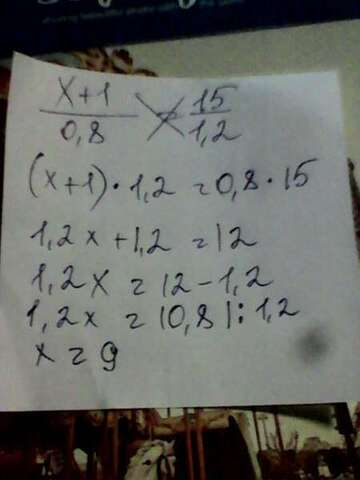 x+1 / 0,8 = 15 / 1,2
(x+1) · 1,2 = 0,8 · 15
1,2x + 1,2 = 12
1,2x = 12 - 1,2
1,2x = 10,8 |: 1,2
x = 9